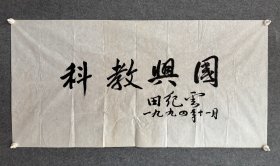 科教興國
田纪雲
一九九四年十一月